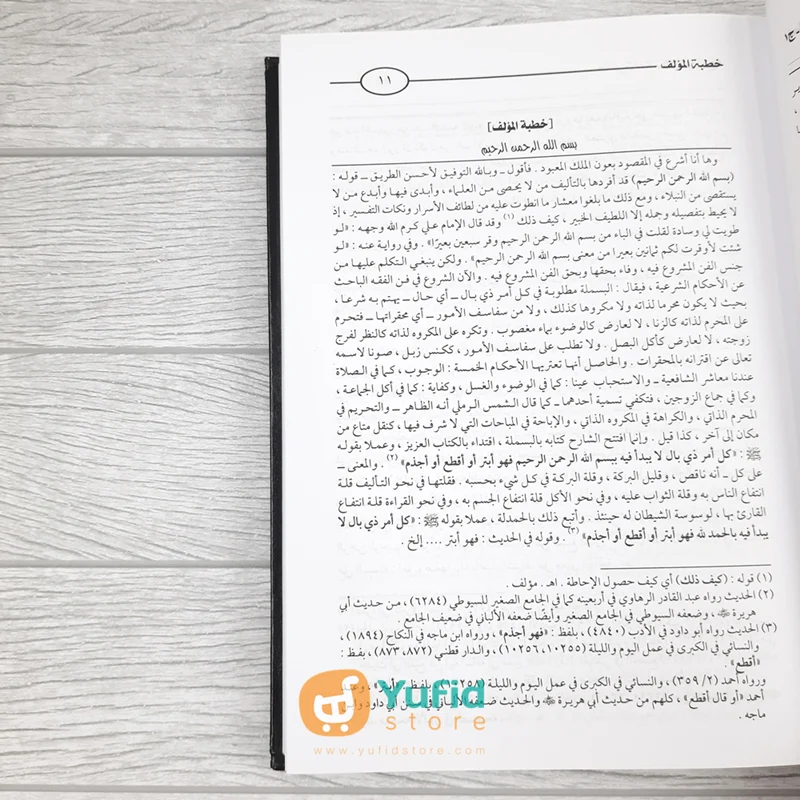 خطبة المؤلف
١١
[خطبة المؤلف]
بسم الله الرحمن الرحيم
وها أنا أشرع في المقصود بعون الملك المعبود . فأقول ــ وبالله التوفيق لأحسن الطريق ــ قوله :
(بسم الله الرحمن الرحيم) قد أفردها بالتأليف من لا يحصى من العلماء ، وأبدى فيها وأبدع من لا
يستقصى من النبلاء ، ومع ذلك ما بلغوا معشار ما انطوت عليه من لطائف الأسرار ونكات التفسير ، إذ
لا يحيط بتفصيله وجمله إلا اللطيف الخبير ، كيف ذلك (١) وقد قال الإمام علي كرم الله وجهه : «لـو
طويت لي وسادة لقلت في الباء من بسم الله الرحمن الرحيم وقر سبعين بعيرًا» . وفي رواية عنه : «لـو
شئت لأوقرت لكم ثمانين بعيرا من معنى بسم الله الرحمن الرحيم» . ولكن ينبغي التكلم عليها مـن
جنس الفن المشروع فيه ، وفاء بحقها وبحق الفن المشروع فيه . والآن الشروع في فـن الفقه الباحث
عن الأحكام الشرعية ، فيقال : البسملة مطلوبة في كـل أمـر ذي بال ــ أي حال ــ يهتم به شرعا ،
بحيث لا يكون محرما لذاته ولا مكروها كذلك ، ولا من سفاسف الأمـور ــ أي محقراتها ــ فتحرم
على المحرم لذاته كالزنا ، لا لعارض كالوضوء بماء مغصوب . وتكره على المكروه لذاته كالنظر لفرج
زوجته ، لا لعارض كأكل البصل . ولا تطلب على سفاسف الأمور ، ككنس زبل ، صونا لاسمه
تعالى عن اقترانه بالمحقرات . والحاصل أنها تعتريها الأحكام الخمسة : الوجوب ، كما في الصلاة
عندنا معاشر الشافعية ــ والاستحباب عينا : كما في الوضوء والغسل ، وكفاية : كما في أكل الجماعة ،
وكما في جماع الزوجين ، فتكفي تسمية أحدهما ــ كما قال الشمس الرملي أنه الظاهر ــ والتحريم في
المحرم الذاتي ، والكراهة في المكروه الذاتي ، والإباحة في المباحات التي لا شرف فيها ، كنقل متاع من
مكان إلى آخر ، كذا قيل . وإنما افتتح الشارح كتابه بالبسملة ، اقتداء بالكتاب العزيز ، وعملا بقولـه
ﷺ : «كل أمر ذي بال لا يبدأ فيه ببسم الله الرحمن الرحيم فهو أبتر أو أقطع أو أجذم» (٢) . والمعنى ــ
على كل ــ أنه ناقص ، وقليل البركة ، وقلة البركة في كـل شيء بحسبه . فقلتها في نحو التأليف قلة
انتفاع الناس به وقلة الثواب عليه ، وفي نحو الأكل قلة انتفاع الجسم به ، وفي نحو القراءة قلة انتفاع
القارئ بها ، لوسوسة الشيطان له حينئذ . وأتبع ذلك بالحمدلة ، عملا بقوله ﷺ : «كل أمر ذي بال لا
يبدأ فيه بالحمد لله فهو أبتر أو أقطع أو أجذم» (٣) . وقوله في الحديث : فهو أبتر .... إلخ .
(١) قوله : (كيف ذلك) أي كيف حصول الإحاطة . اهـ . مؤلف .
(٢) الحديث رواه عبد القادر الرهاوي في أربعينه كما في الجامع الصغير للسيوطي (٦٢٨٤) ، مـن حديث أبي
هريرة ، وضعفه السيوطي في الجامع الصغير وأيضًا ضعفه الألباني في ضعيف الجامع .
(٣) الحديث رواه أبو داود في الأدب (٤٨٤٠) ، بلفظ : «فهو أجذم» ، ورواه ابن ماجه في النكاح (١٨٩٤) ،
والنسائي في الكبرى في عمل اليوم والليلة (١٠٢٥٥ ، ١٠٢٥٦) ، والدار قطني (٨٧٢ ، ٨٧٣) ، بلفظ :
«أقطع» .
ورواه أحمد (٢/ ٣٥٩) ، والنسائي في الكبرى في عمل اليـوم والليلة ، بلفظ : «أبتر» ، وعند
أحمد «أو قال أقطع» ، كلهم من حديث أبي هريرة والحديث ضعفه الألباني في أبي داود وابن
ماجه .
Yufid
store
www.yufidstore.com